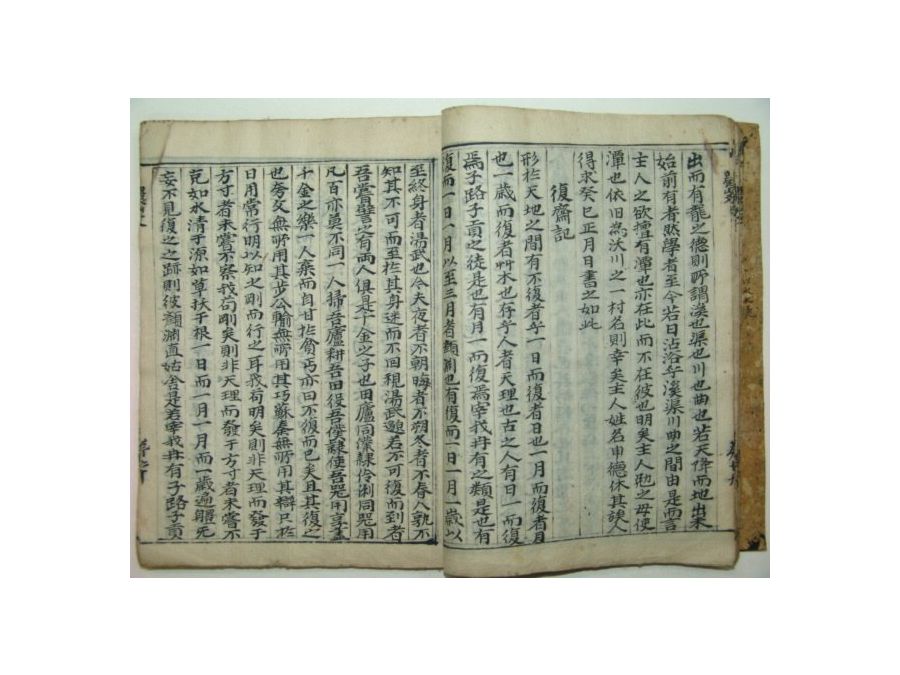 出而有龍之德則所謂溪也渠也川也曲也若天俾而地出未
始前有者然學者至今若日沾浴乎溪渠川曲之間由是而言
主人之欲擅有潭也亦在此而不在彼也明矣主人勉之毋使
潭也依旧為沃川之一村名則幸矣主人姓名申德休其誤人
得求癸巳正月日書之如此
復齋記
形於天地之間有不復者乎一日而復者日也一月而復者月
也一歲而復者艸木也存乎人者天理也古之人有日一而復
焉子路子貢之徒是也有月一而復焉宰我冉有之類是也有
復而一日一月以至三月者顏淵也有復而一日一月一歲以
至終身者湯武也今夫夜者不朝晦者不朔冬者不春人孰不
知其不可而至於其身迷而不回視湯武邈若不可復而到者
吾嘗譬之有兩人俱是千金之子也田廬同僕隸伶俐同器用
凡百亦莫不同一人掃吾廬耕吾田役吾僕隸使吾器用享盡
千金之樂一人棄而自甘於貧丐亦曰不復而已矣且其復之
也夸父無所用其步公輸無所用其巧蘇秦無所用其辯只於
日用常行明以知之剛而行之耳我苟明矣則非天理而發于
方寸者未嘗不察我苟剛矣則非天理而發于方寸者未嘗不
克如水清于源如草扶于根一日而一月一月而一歲遍軆无
妄不見復之之跡則彼顏淵直姑舍是若宰我冉有子路子貢